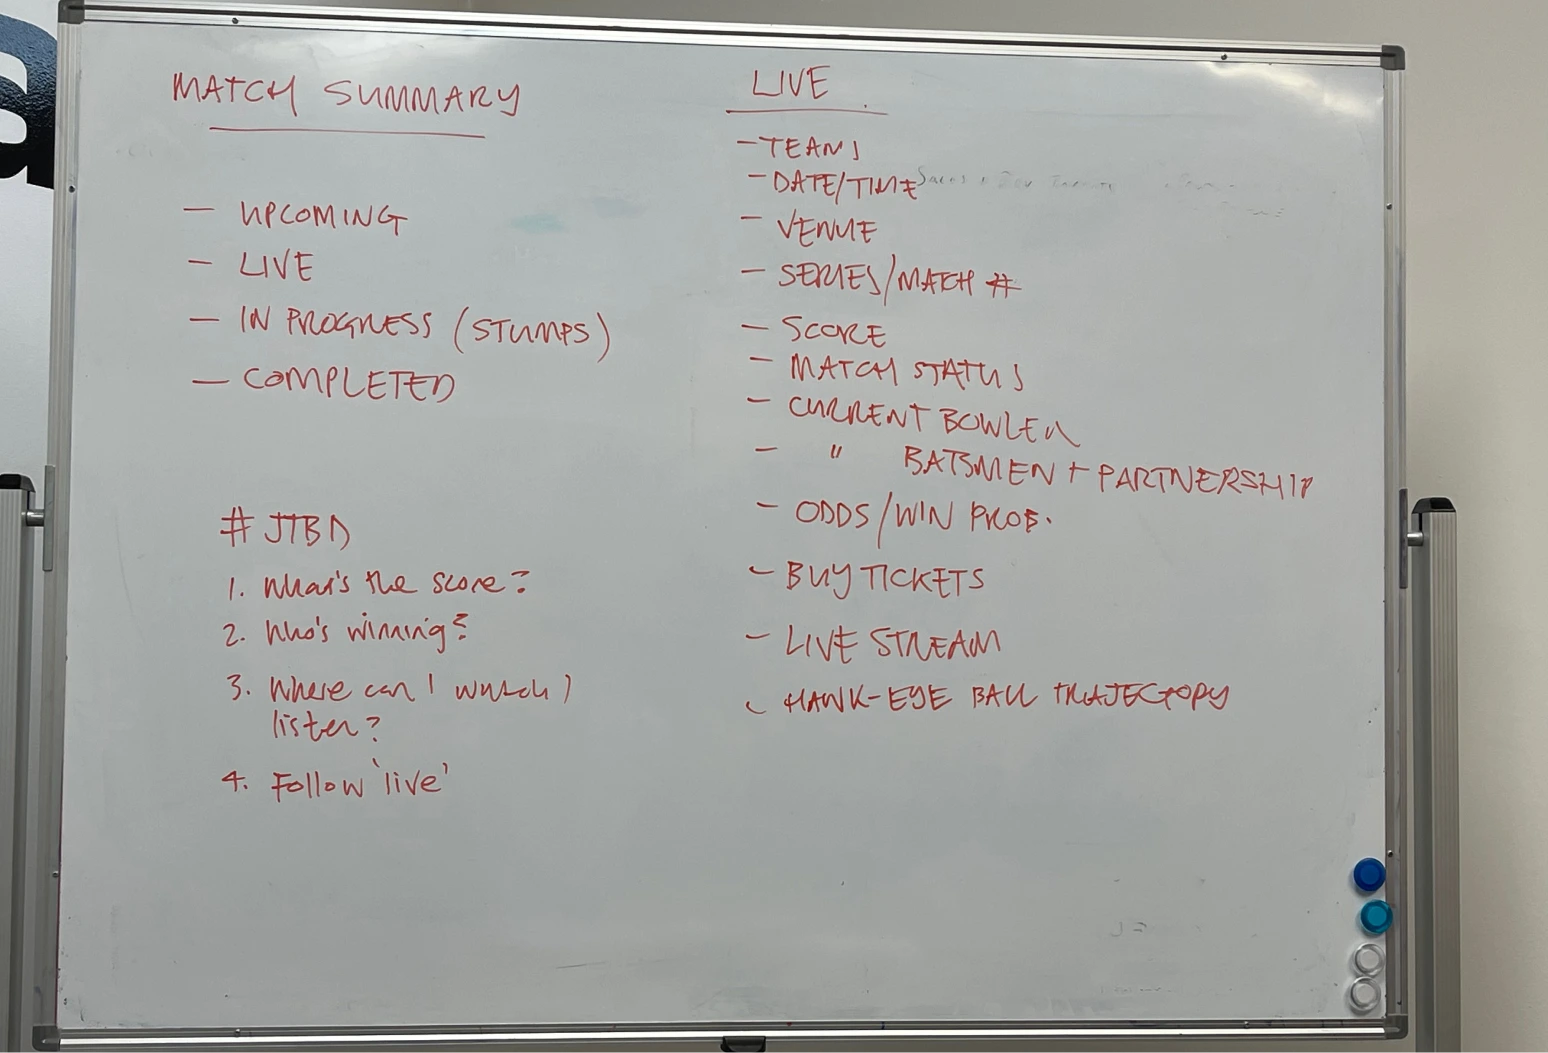 MATCH SUMMARY
- UPCOMING
- LIVE
- IN PROGRESS (STUMPS)
- COMPLETED
# JTBD
1. What's the score?
2. Who's winning?
3. Where can I watch /
listen?
4. Follow 'live'
LIVE
- TEAMS
- DATE/TIME
- VENUE
- SERIES/MATCH #
- SCORE
- MATCH STATUS
- CURRENT BOWLER
- " BATSMEN + PARTNERSHIP
- ODDS/WIN PROB.
- BUY TICKETS
- LIVE STREAM
- HAWK-EYE BALL TRAJECTORY